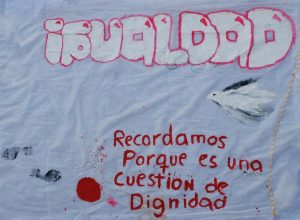 iGUALDAD
Recordamos
Porque es una
CUESTIÓN de
Dignidad